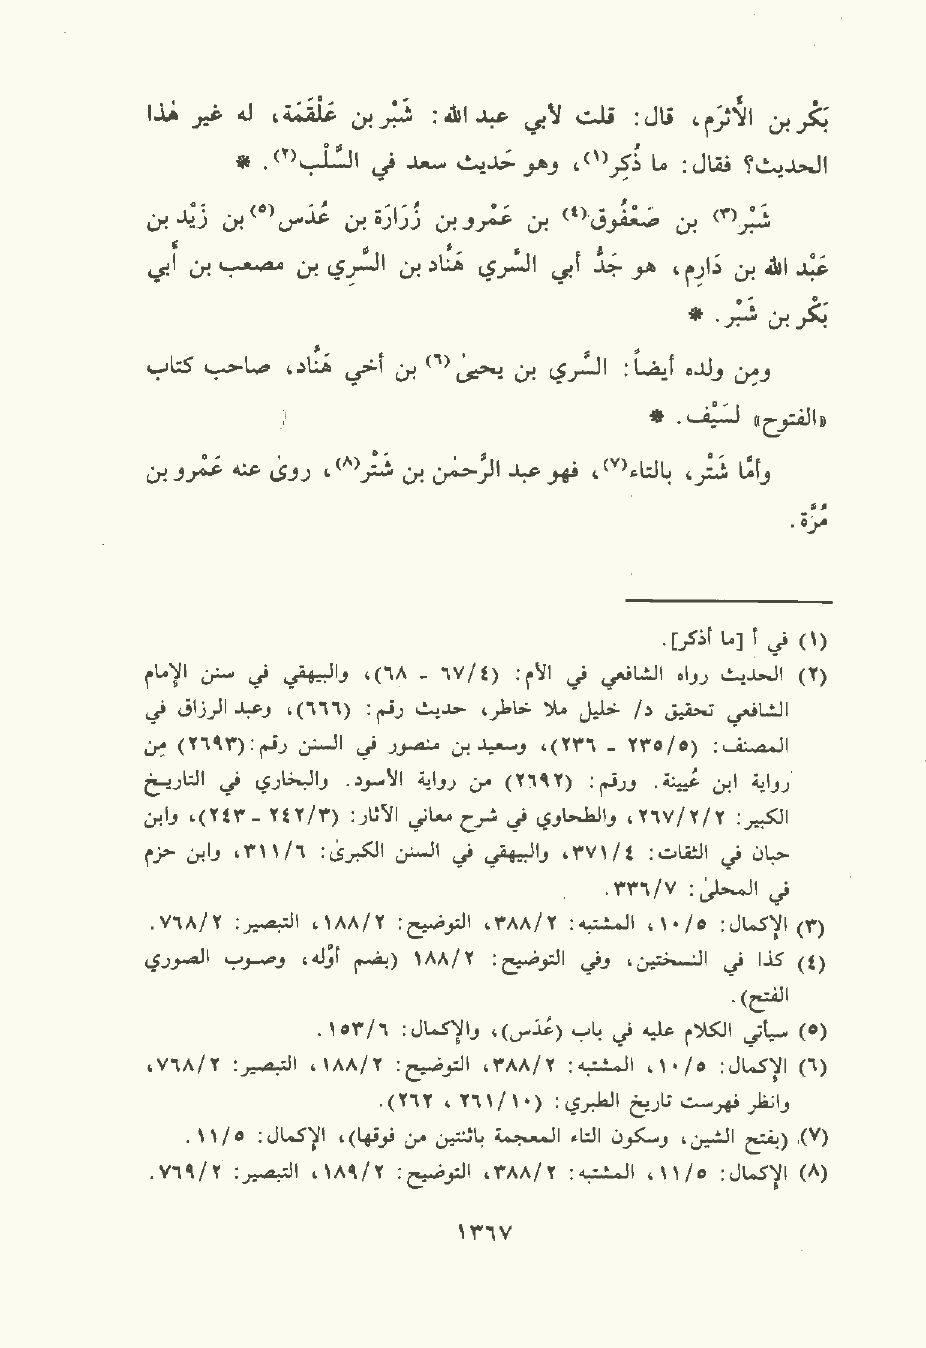 بَكْر بن الأَثرَم، قال: قلت لأبي عبد الله: شَبْر بن عَلْقَمَة، له غير هٰذا
الحديث؟ فقال: ما ذُكِر(١)، وهو حَديث سعد في السَّلَب(٢). *
شَبْر(٣) بن صَعْفُوق(٤) بن عَمْرو بن زُرَارَة بن عُدَس(٥) بن زَيْد بن
عَبْد الله بن دَارِم، هو جَدُّ أبي السَّري هَنَّاد بن السَّرِي بن مصعب بن أبي
بَكْر بن شَبْر. *
ومِن ولده أيضاً: السَّري بن يحيىٰ(٦) بن أخي هَنَّاد، صاحب كتاب
«الفتوح» لسَيْف. *
وأمَّا شَتْر، بالتاء(٧)، فهو عبد الرَّحمٰن بن شَتْر(٨)، روىٰ عنه عَمْرو بن
مُرَّة.
(١) في أ [ما أذكر].
(٢) الحديث رواه الشافعي في الأم: (٤/٦٧ - ٦٨)، والبيهقي في سنن الإمام
الشافعي تحقيق د/ خليل ملا خاطر، حديث رقم: (٦٦٦)، وعبد الرزاق في
المصنف: (٥/٢٣٥ - ٢٣٦)، وسعيد بن منصور في السنن رقم: (٢٦٩٣) مِن
رواية ابن عُيينة. ورقم: (٢٦٩٢) من رواية الأسود. والبخاري في التاريخ
الكبير: ٢/٢/٢٦٧، والطحاوي في شرح معاني الآثار: (٣/٢٤٢ - ٢٤٣)، وابن
حبان في الثقات: ٤/٣٧١، والبيهقي في السنن الكبرىٰ: ٦/٣١١، وابن حزم
في المحلىٰ: ٧/٣٣٦.
(٣) الإكمال: ٥/١٠، المشتبه: ٢/٣٨٨، التوضيح: ٢/١٨٨، التبصير: ٢/٧٦٨.
(٤) كذا في النسختين، وفي التوضيح: ٢/١٨٨ (بضم أوَّله، وصوب الصوري
الفتح).
(٥) سيأتي الكلام عليه في باب (عُدَس)، والإكمال: ٦/١٥٣.
(٦) الإكمال: ٥/١٠، المشتبه: ٢/٣٨٨، التوضيح: ٢/١٨٨، التبصير: ٢/٧٦٨،
وانظر فهرست تاريخ الطبري: (١٠/٢٦١، ٢٦٢).
(٧) (بفتح الشين، وسكون التاء المعجمة باثنتين من فوقها)، الإكمال: ٥/١١.
(٨) الإكمال: ٥/١١، المشتبه: ٢/٣٨٨، التوضيح: ٢/١٨٩، التبصير: ٢/٧٦٩.
١٣٦٧